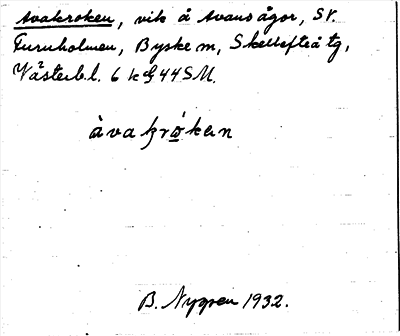 Avakroken, vik å Avans ågor, SV.
Furuholmen, Byske m, Skellefteå tg,
Västerbl. 6 kaf 44 SM.
àva krókan
B. Nygren 1932.